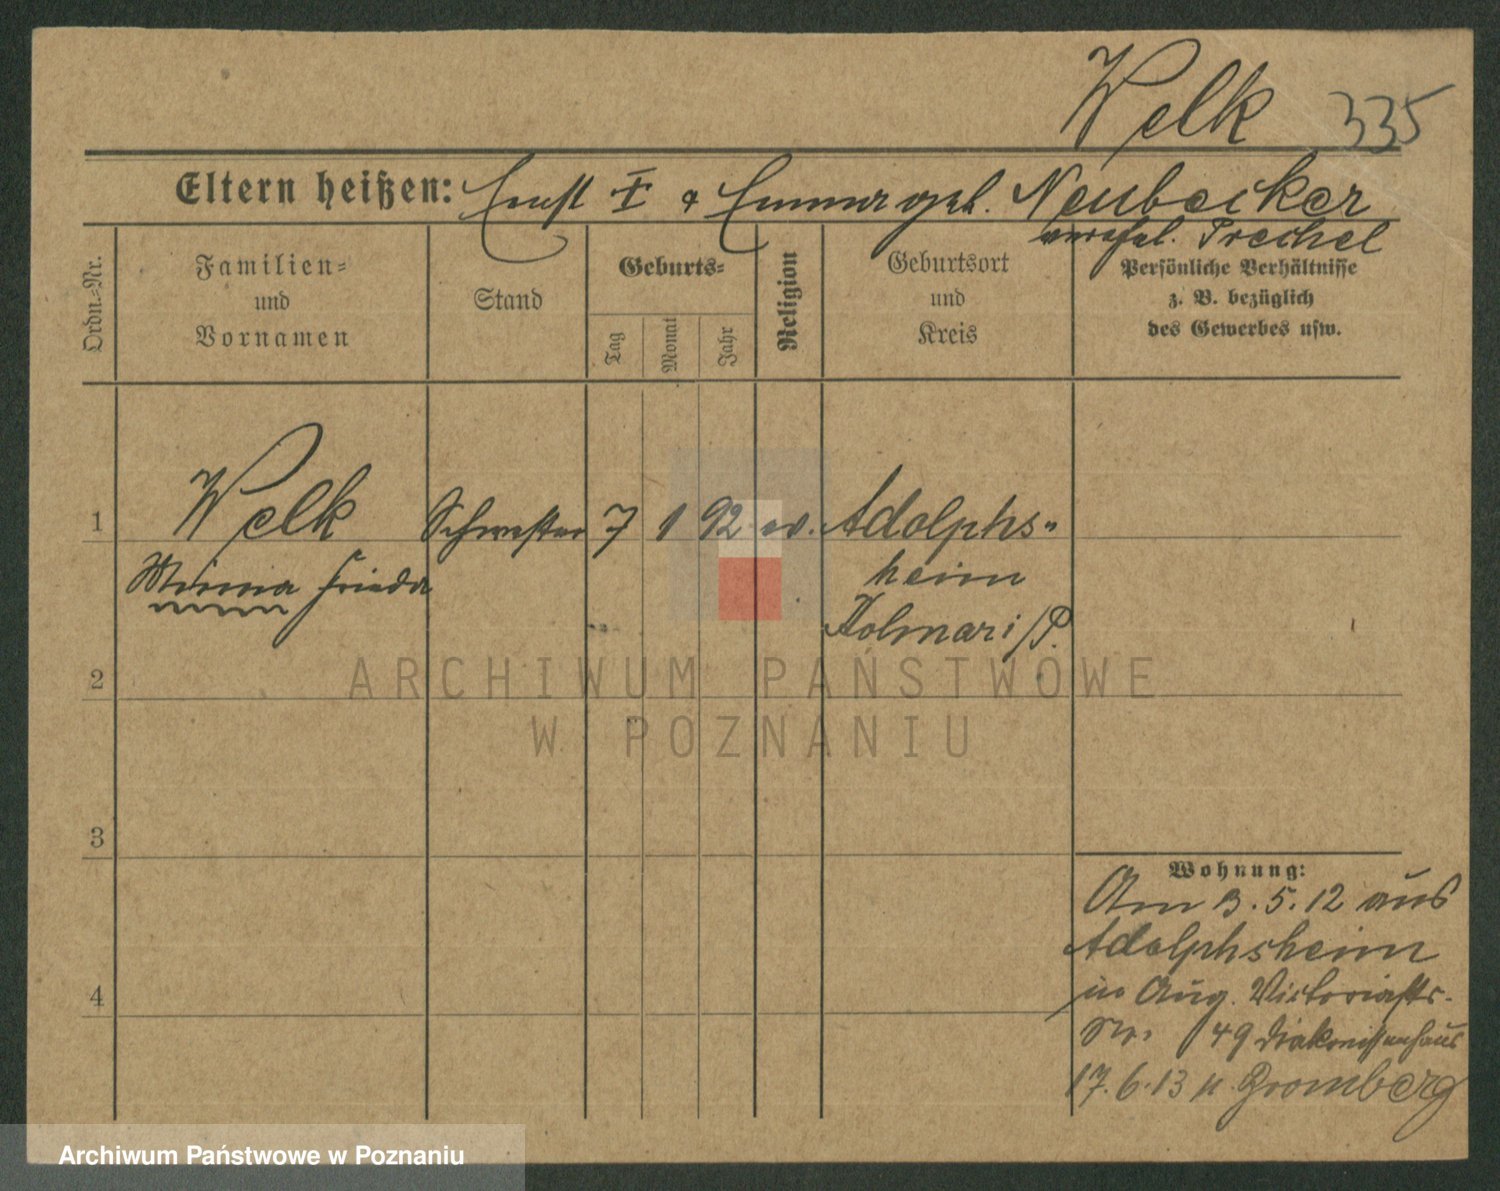 Welk 335
Eltern heißen: Ernst I & Emma geb. Neubecker
verehel. Prechel
Ordn.-Nr.
Familien-
und
Vornamen
Stand
Geburts-
Tag
Monat
Jahr
Religion
Geburtsort
und
Kreis
Persönliche Verhältnisse
z. B. bezüglich
des Gewerbes usw.
1 Welk Schwester 7 1 92 ev. Adolphs-
Minna Frieda heim
Kolmar i/P.
2
3
4
Wohnung:
Am 3.5.12 aus
Adolphsheim
in Aug. Victoriastr.
Nr. 49 Diakonissenhaus
17.6.13 n. Bromberg
ARCHIWUM PAŃSTWOWE
W POZNANIU
Archiwum Państwowe w Poznaniu